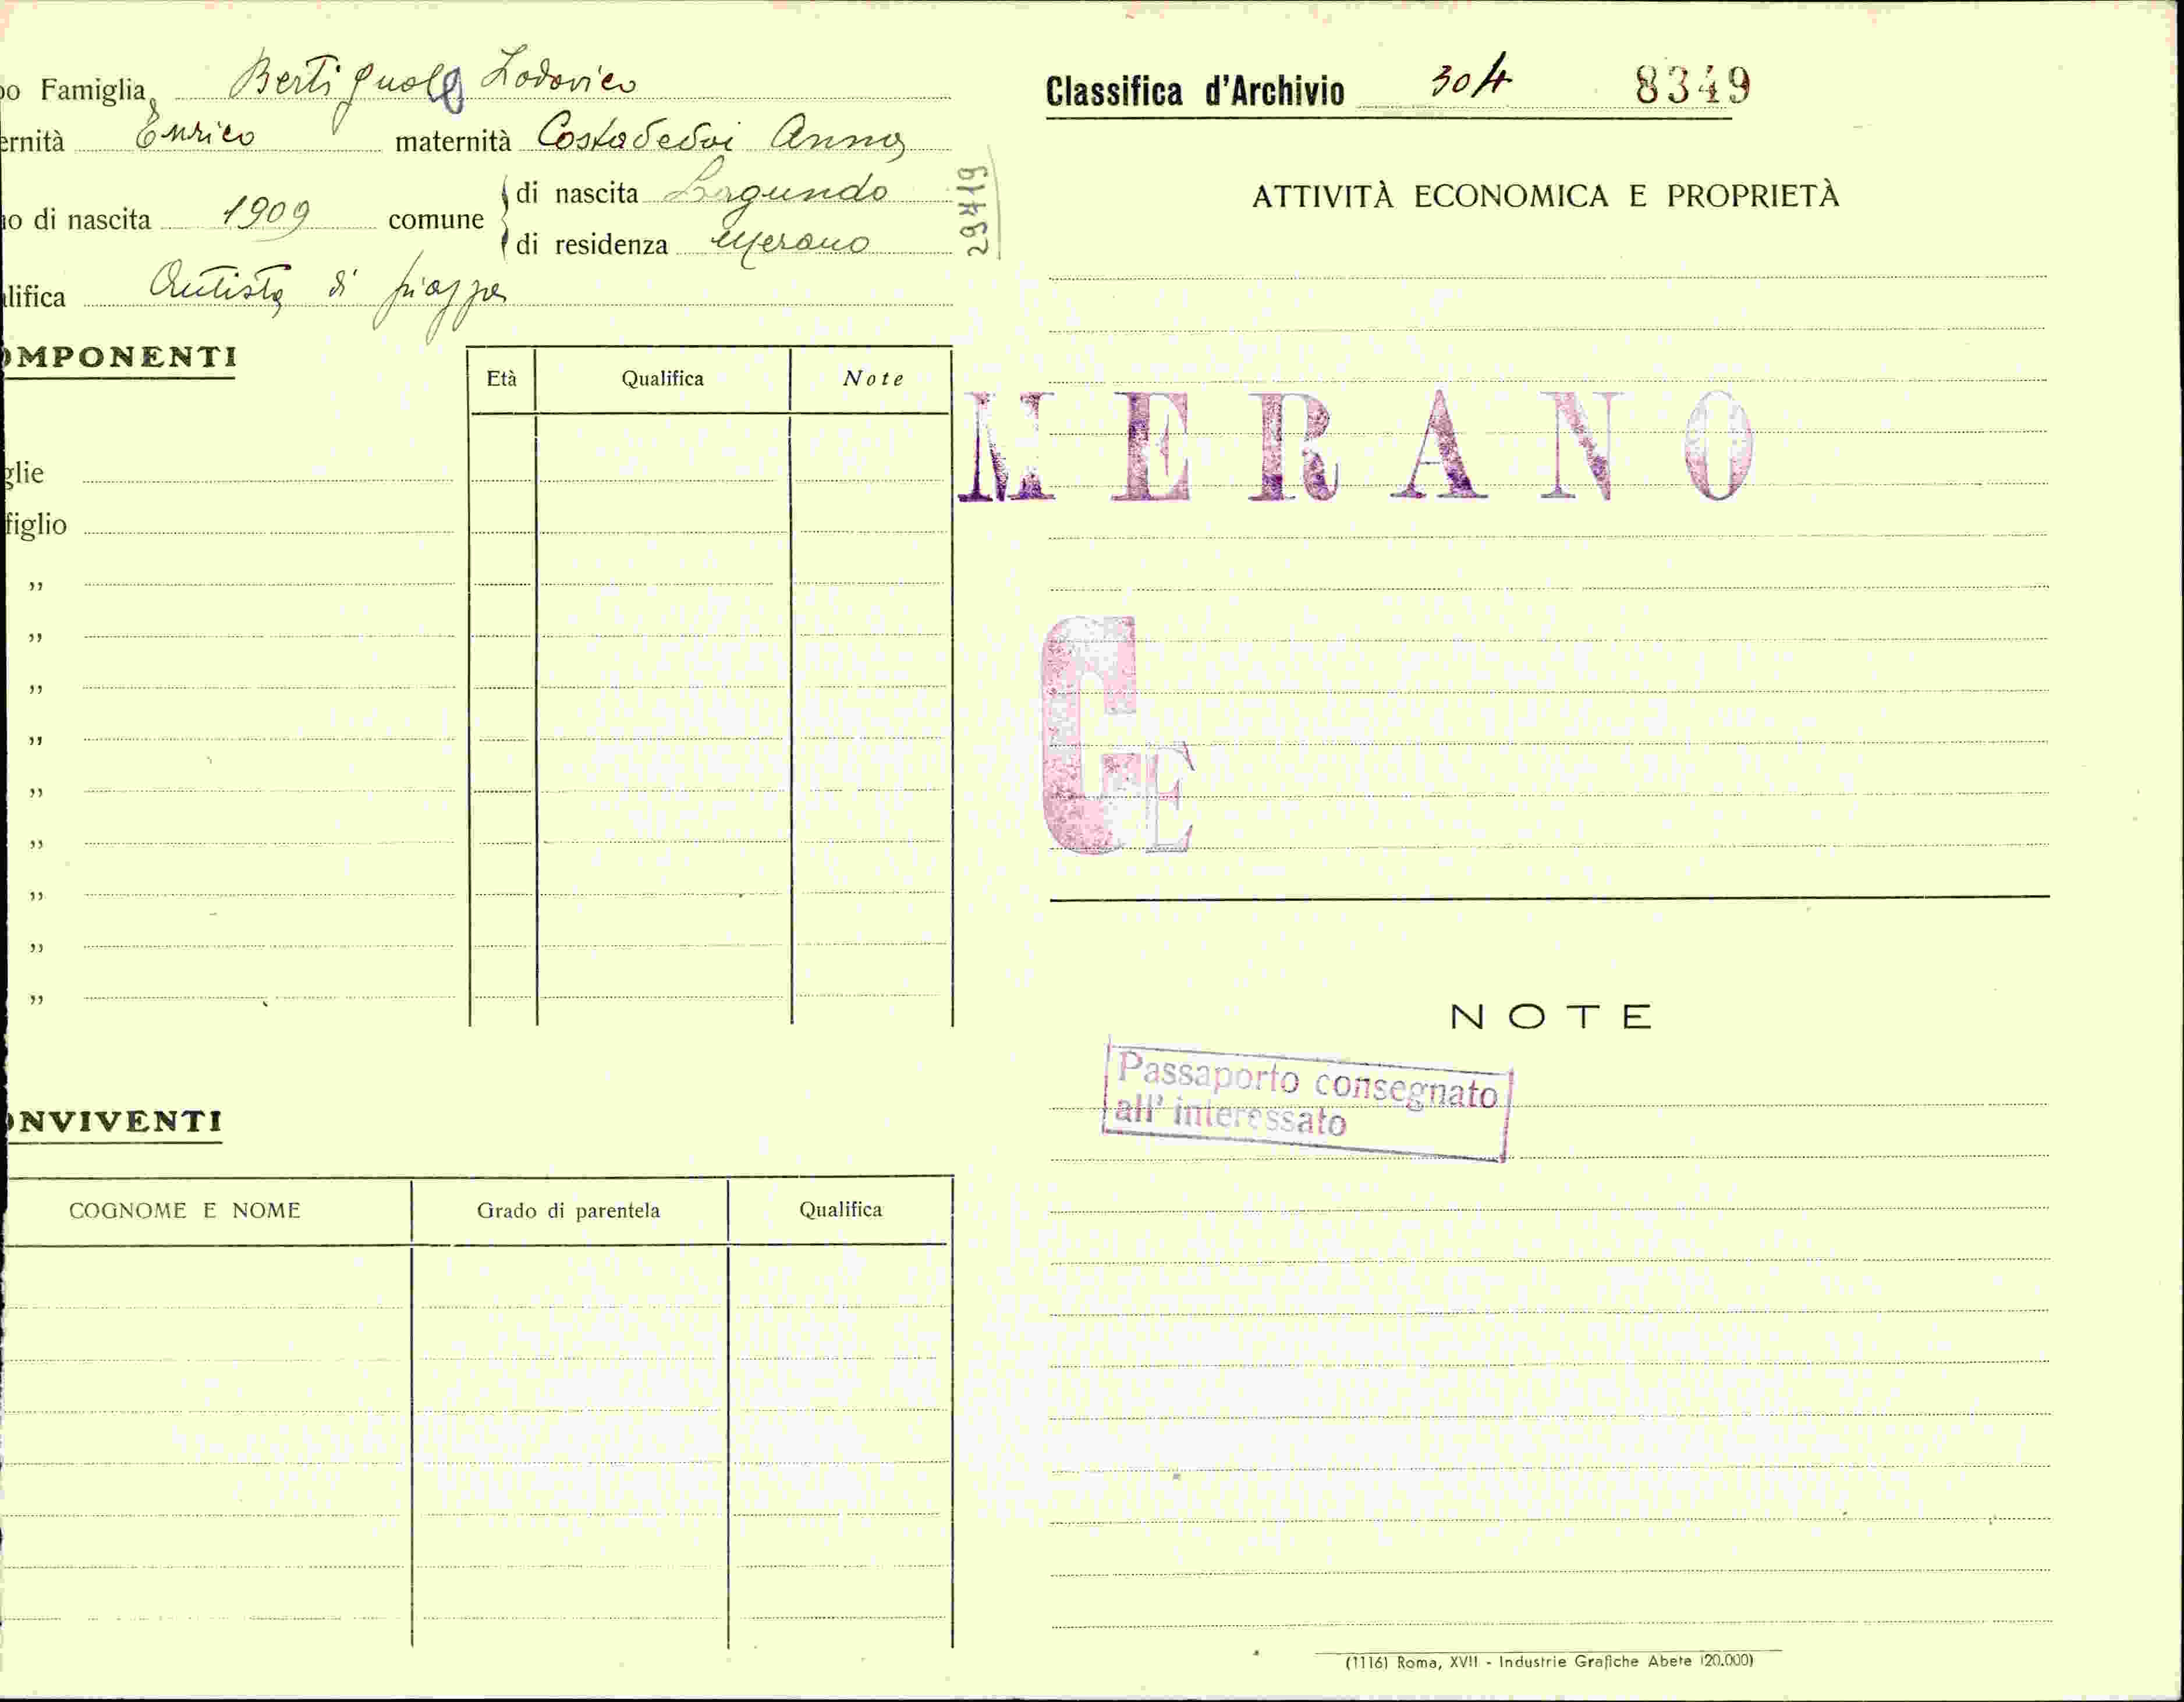 o Famiglia Bertignolg Lodovico
ernità Enrico maternità Costadedoi Anna
o di nascita 1909 comune di nascita Lagundo
di residenza Merano
lifica Autista di piazza
OMPONENTI
Età Qualifica Note
glie
figlio
,,
,,
,,
,,
,,
,,
,,
,,
,,
ONVIVENTI
COGNOME E NOME Grado di parentela Qualifica
29419
Classifica d'Archivio 304 8349
ATTIVITÀ ECONOMICA E PROPRIETÀ
MERANO
GE
NOTE
Passaporto consegnato
all' interessato
(1116) Roma, XVII - Industrie Grafiche Abete (20.000)